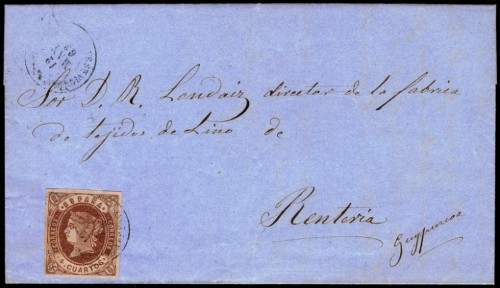 Sor D. R. Londaiz director de la fabrica
de tejidos de Lino de
Renteria
Guypuzcoa
ESPAÑA
CORREOS
4 CUARTOS